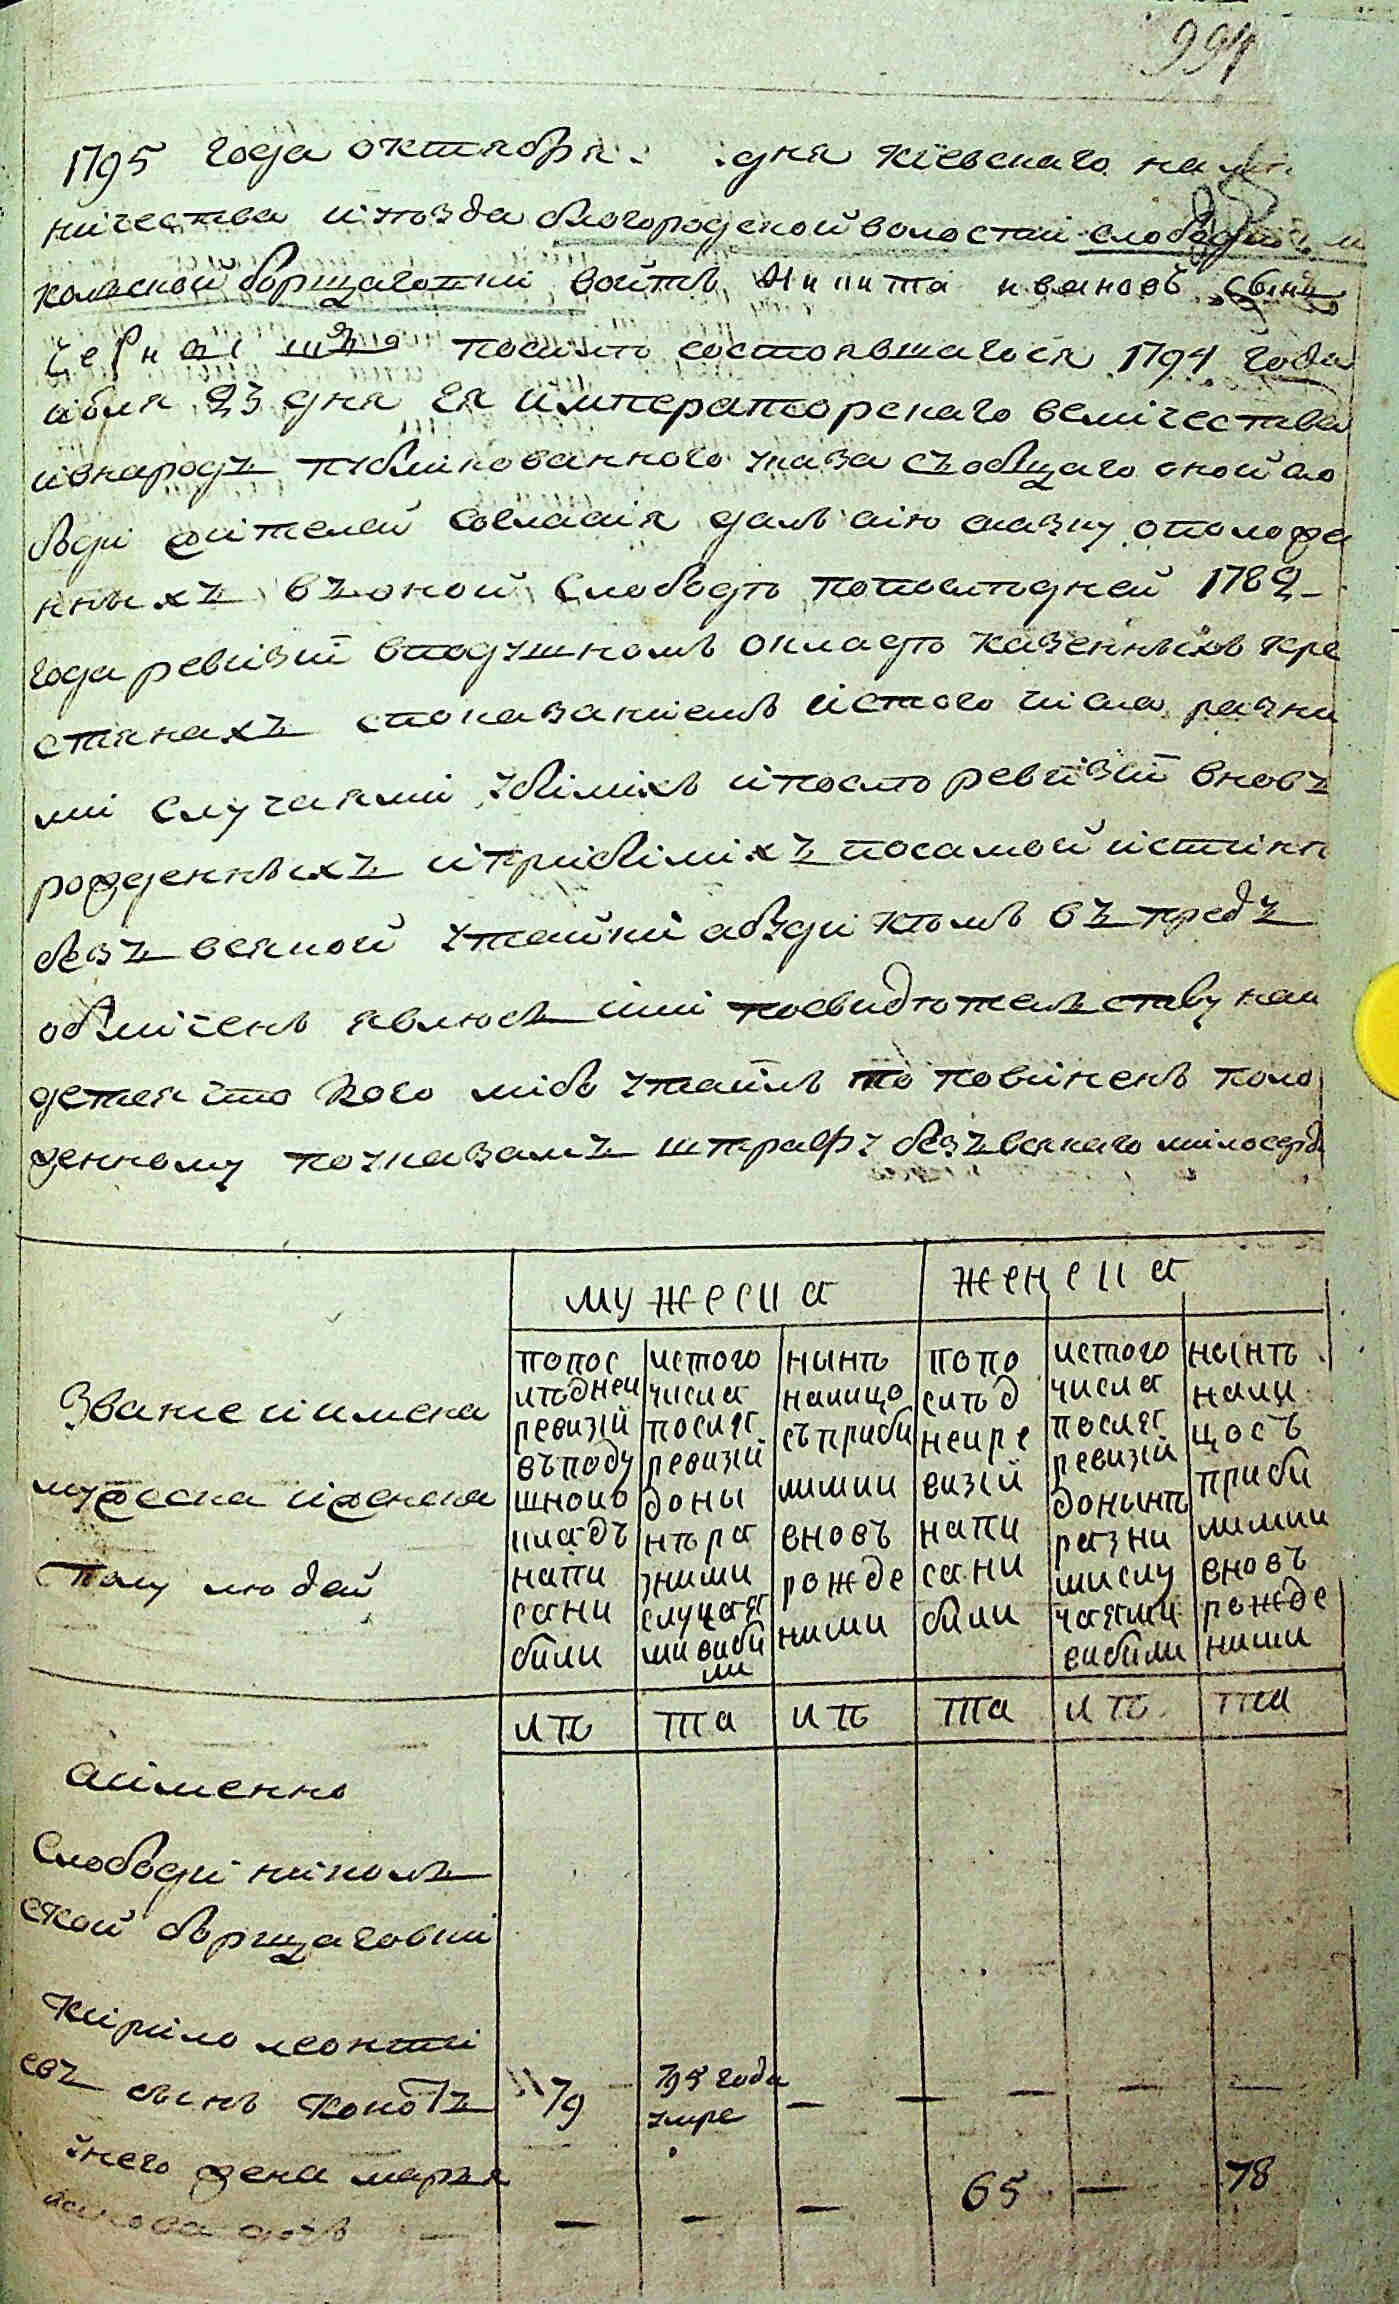 994
1795 года октября дня кіевскаго намѣс
ничества иуѣзда белогородской волости слободи ни
кольской борщаговки войтъ Никита ивановъ сынъ
посилѣ состоявшагося 1794 года
июня 23 дня Ея императорскаго величества
івнародъ публикованного указа съобщаго оной сло
боди жителей согласія далъ сію сказку оположе
нныхъ въоной слободѣ попослѣдней 1782
года ревизіи вподушномъ окладѣ казенныхъ кре
стянахъ споказаніемъ істого числа разни
ми случаями убілихъ іпослѣ ревизіи вновъ
рожденныхъ іприбілихъ посамой істінн
безъ всякой утайки абуди кѣмъ въпредъ
обличенъ явлюсь іли посвидѣтельству най
дется что кого либо утаилъ то повиненъ поло
женному поуказамъ штрафу безъвсякаго милосердія
мужеска женска
Званіе иимена
мужеска иженска
полу людей
попос
лѣдней
ревизій
въподу
шномо
кладъ
напи
сани
били
истого
числа
послѣ
ревизій
доны
нѣра
зними
случая
мивиби
ли
нынѣ
налицо
съприби
лими
вновъ
рожде
ними
попо
слѣд
нейре
визій
напи
сани
били
истого
числа
послѣ
ревизій
донынѣ
разни
мислу
чаями
вибили
нынѣ
нали
цосъ
приби
лими
вновъ
рожде
ними
лѣ та лѣ та лѣ та
аименно
Слободи николь
ской борщаговки
Кирило леонти
евъ сынъ Коноbъ 79 795 года — — — — —
умре
унего жена марья
— — — 65 — 78
дочь